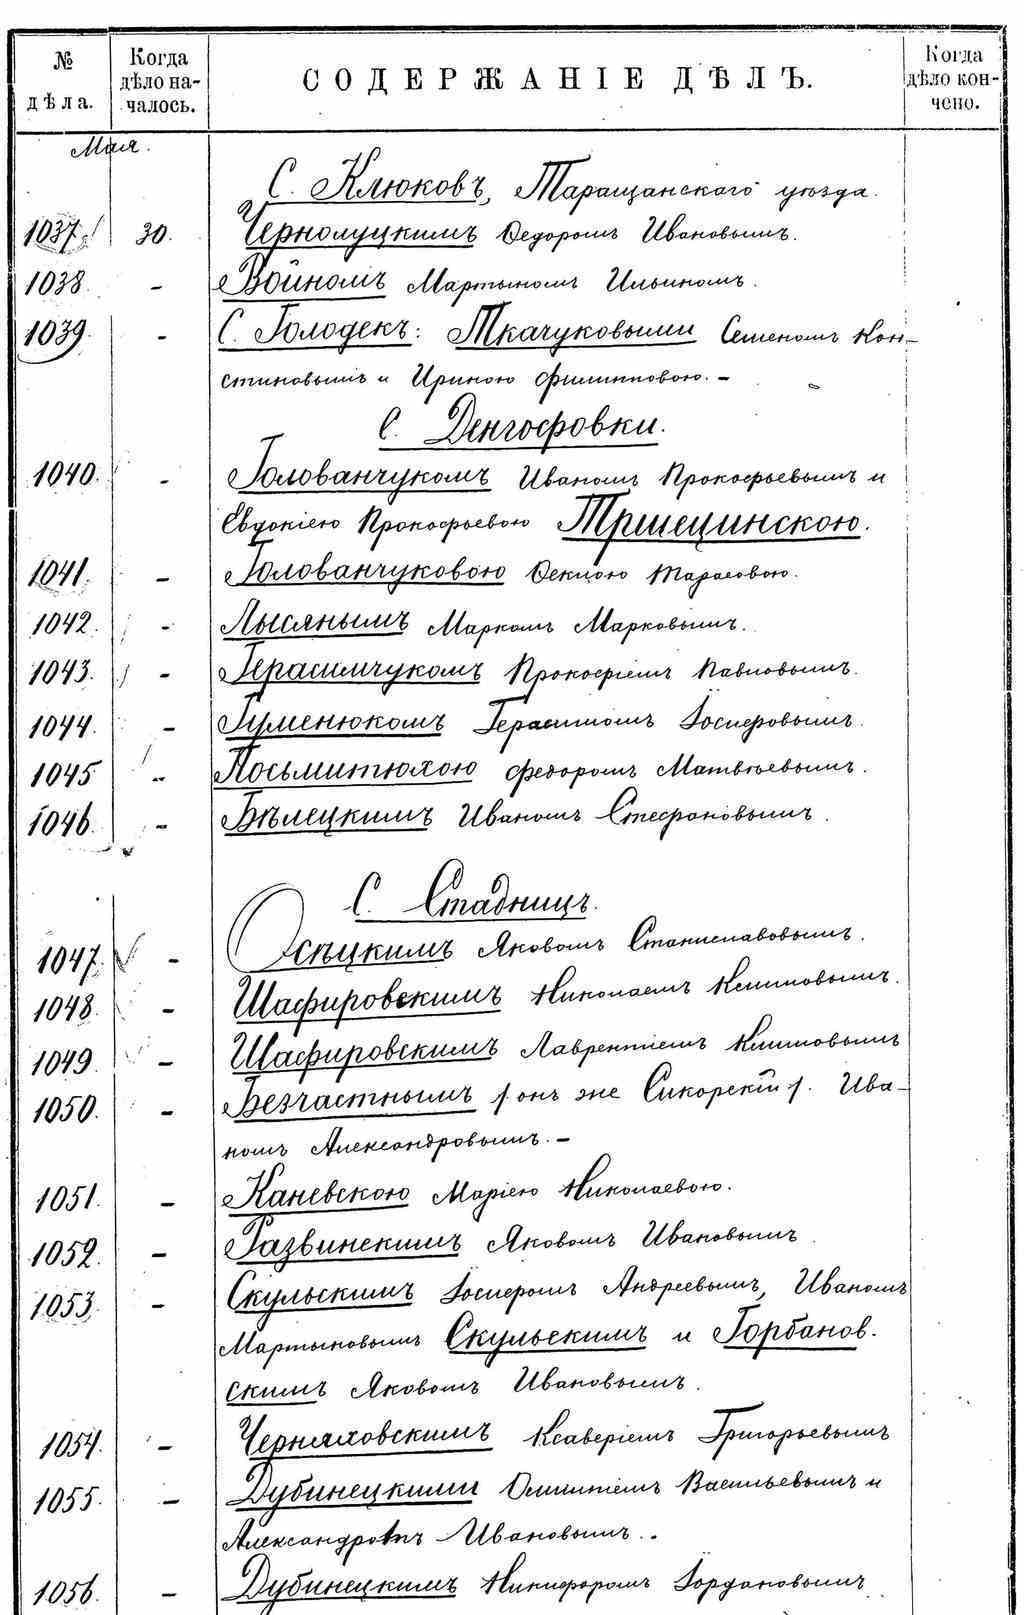 № дѣла. Когда дѣло началось. СОДЕРЖАНІЕ ДѢЛЪ. Когда дѣло кончено.
Мая.
С. Клюковъ, Таращанскаго уѣзда.
1037. 30. Чернолуцкимъ Ѳедоромъ Ивановымъ.
1038. - Войномъ Мартыномъ Ильиномъ.
1039. - С. Голодекъ: Ткачуковыми Семеномъ Кон-
стиновымъ и Ириною Филипповою. -
С. Денгофовки.
1040. - Голованчукомъ Иваномъ Прокофьевымъ и
Евдокіею Прокофьевою Тршецинскою.
1041. - Голованчуковою Ѳеклою Тарасовою.
1042. - Лысянымъ Маркомъ Марковымъ.
1043. - Герасимчукомъ Прокофіемъ Павловымъ.
1044. - Гуменюкомъ Герасимомъ Іосифовымъ.
1045 - Косьмитюхою Федоромъ Матвѣевымъ.
1046. - Бѣлецкимъ Иваномъ Стефановымъ.
С. Стадницъ.
1047. - Осѣцкимъ Яковомъ Станиславовымъ.
1048. - Шафировскимъ Николаемъ Климовымъ.
1049. - Шафировскимъ Лаврентіемъ Климовымъ
1050. - Безчастнымъ /онъ же Сикорскій/. Ива-
номъ Александровымъ. -
1051. - Каневскою Маріею Николаевою.
1052. - Развинскимъ Яковомъ Ивановымъ
1053. - Скульскимъ Іосифомъ Андреевымъ, Иваномъ
Мартыновымъ Скульскимъ и Горбанов-
скимъ Яковомъ Ивановымъ.
1054. - Черняховскимъ Ксаверіемъ Григорьевымъ
1055. - Дубинецкими Васильевымъ и
Александромъ Ивановымъ.
1056. - Дубинецкимъ Никифоромъ Іордановымъ